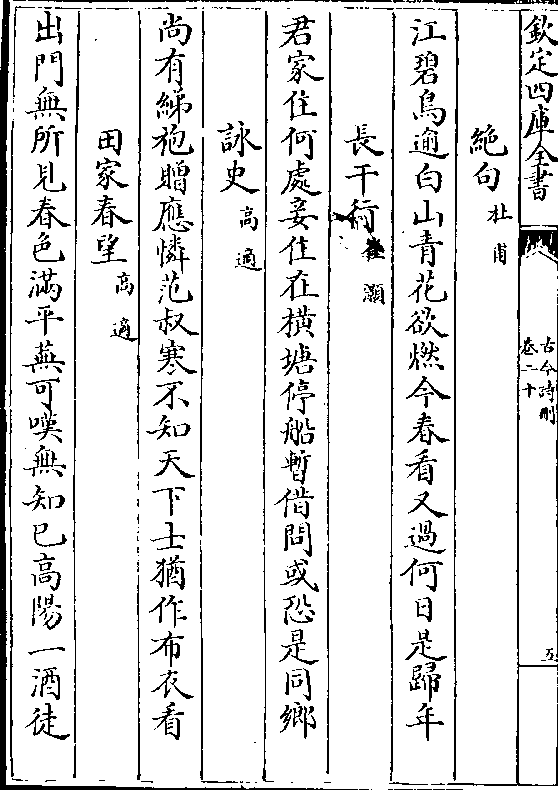 欽定四庫全書
古今詩刪
卷二十
五
絶句 杜甫
江碧鳥逾白山青花欲燃今春看又過何日是歸年
長干行 崔灝
君家住何處妾住在橫塘停船暫借問或恐是同鄉
詠史 高適
尚有綈袍贈應憐范叔寒不知天下士猶作布衣看
田家春望 高適
出門無所見春色滿平蕪可嘆無知已高陽一酒徒